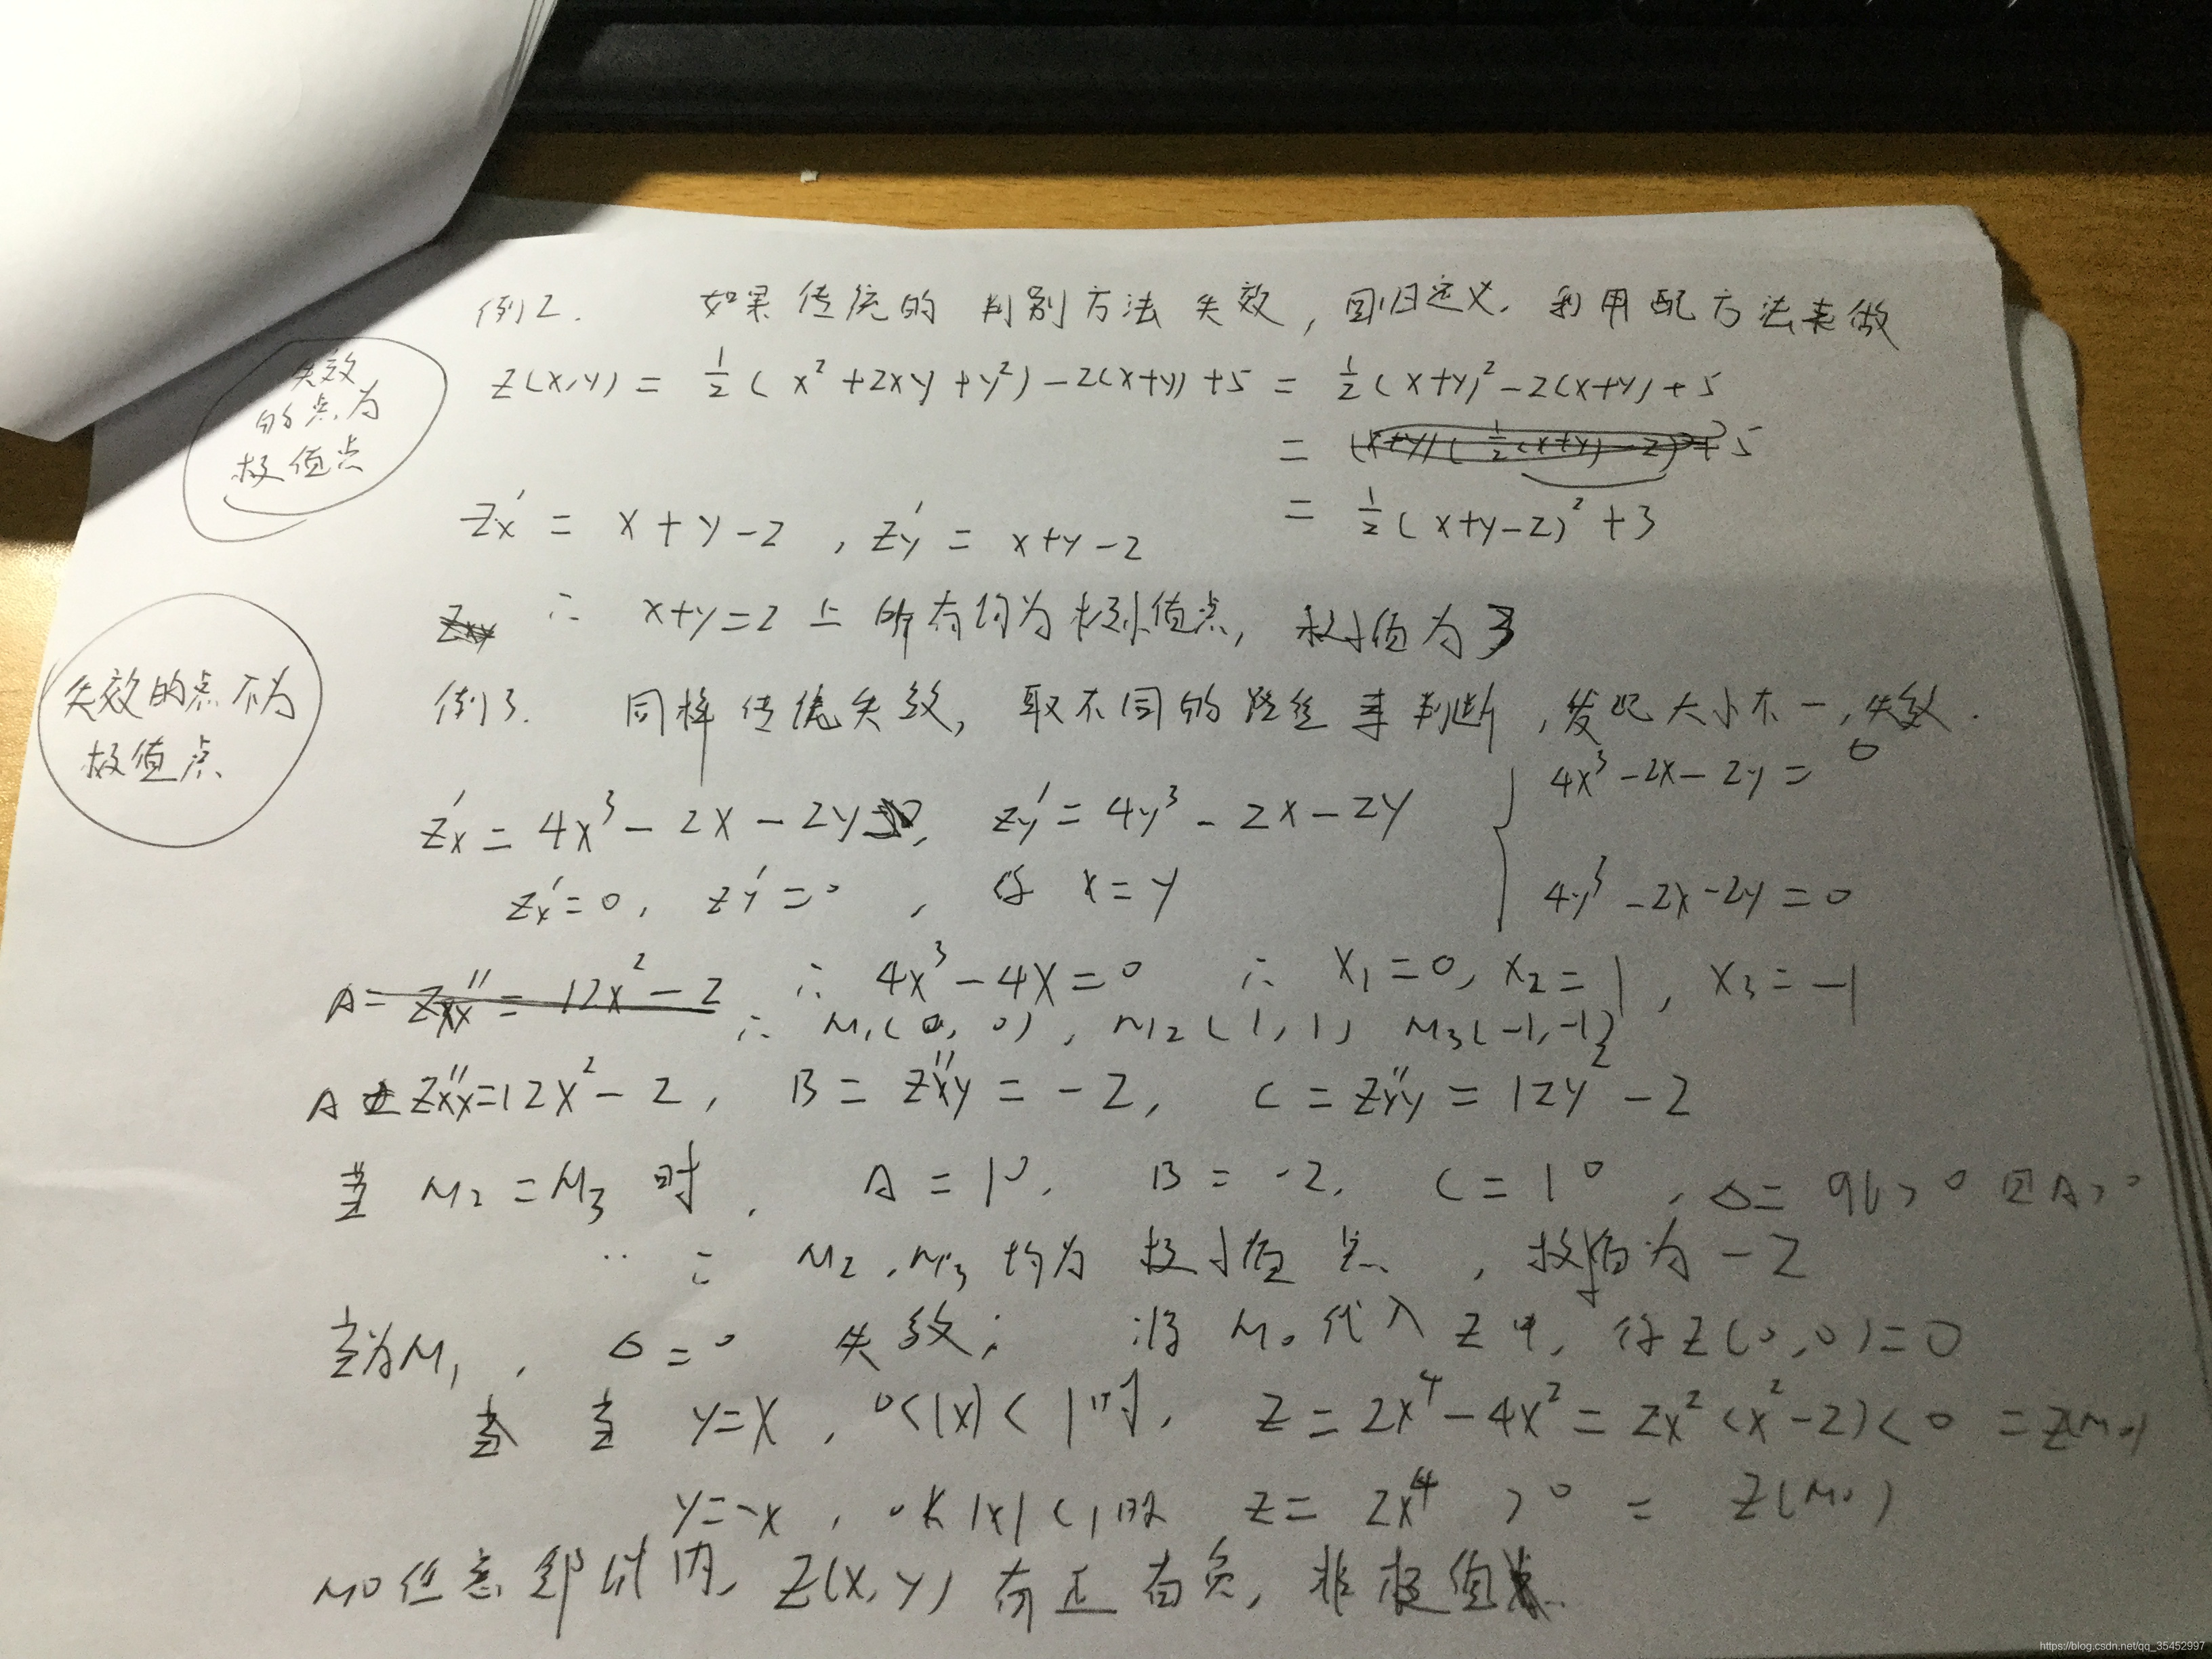 例2. 如果传统的判别方法失效，回归定义，利用配方法来做
失效
的点为
极值点
z(x,y) = 1/2 (x² + 2xy + y²) - 2(x+y) + 5 = 1/2 (x+y)² - 2(x+y) + 5
= (x+y)(1/2(x+y) - 2) + 5
= 1/2 (x+y-2)² + 3
zx' = x + y - 2 , zy' = x + y - 2
zxy ∴ x+y=2 上所有均为极小值点，极小值为3
失效的点不为
极值点
例3. 同样传统失效，取不同的路径来判断，发现大小不一，失效.
zx' = 4x³ - 2x - 2y , zy' = 4y³ - 2x - 2y
{ 4x³ - 2x - 2y = 0
4y³ - 2x - 2y = 0
zx' = 0, zy' = 0 , 得 x = y
A = zxx'' = 12x² - 2 ∴ 4x³ - 4x = 0 ∴ x1 = 0, x2 = 1, x3 = -1
∴ M1(0, 0), M2(1, 1) M3(-1, -1)
A = zxx'' = 12x² - 2, B = zxy'' = -2, C = zyy'' = 12y² - 2
当 M2 = M3 时, A = 10, B = -2, C = 10, Δ = 96 > 0 且 A > 0
∴ M2, M3 均为极小值点, 极值为 -2
当为M1, Δ = 0 失效; 将 M0 代入 z 中, 得 z(0, 0) = 0
当 y = x, 0 < |x| < 1 时, z = 2x⁴ - 4x² = 2x²(x² - 2) < 0 = z(M0)
y = -x, 0 < |x| < 1 时 z = 2x⁴ > 0 = z(M0)
M0 任意邻域内, z(x, y) 有正有负, 非极值点.
https://blog.csdn.net/qq_35452997